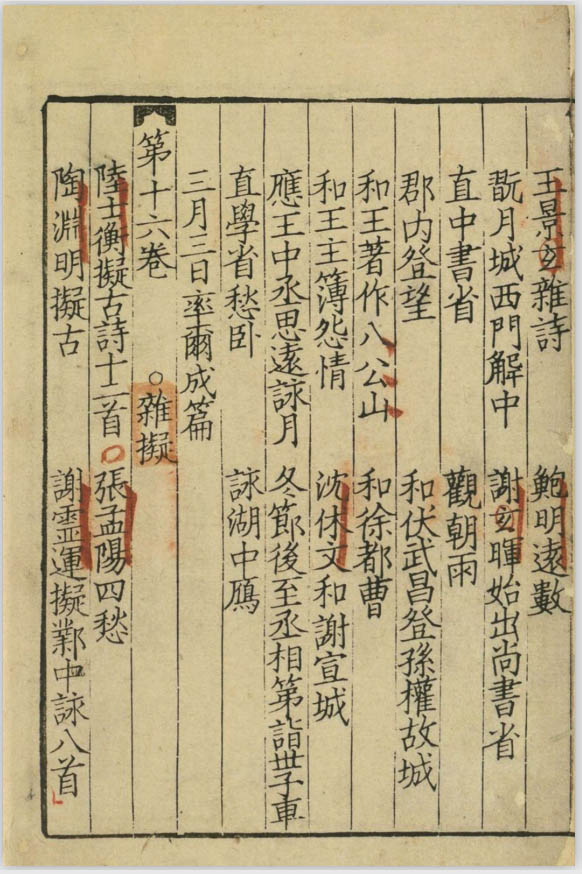 王景玄雜詩　鮑明遠數
翫月城西門解中　謝玄暉始出尚書省
直中書省　觀朝雨
郡内登望　和伏武昌登孫權故城
和王著作八公山　和徐都曹
和王主簿怨情　沈休文和謝宣城
應王中丞思遠詠月　冬節後至丞相第詣世子車
直學省愁卧　詠湖中鴈
三月三日率爾成篇
第十六卷　○雜擬
陸士衡擬古詩十二首　張孟陽四愁
陶淵明擬古　謝靈運擬鄴中詠八首